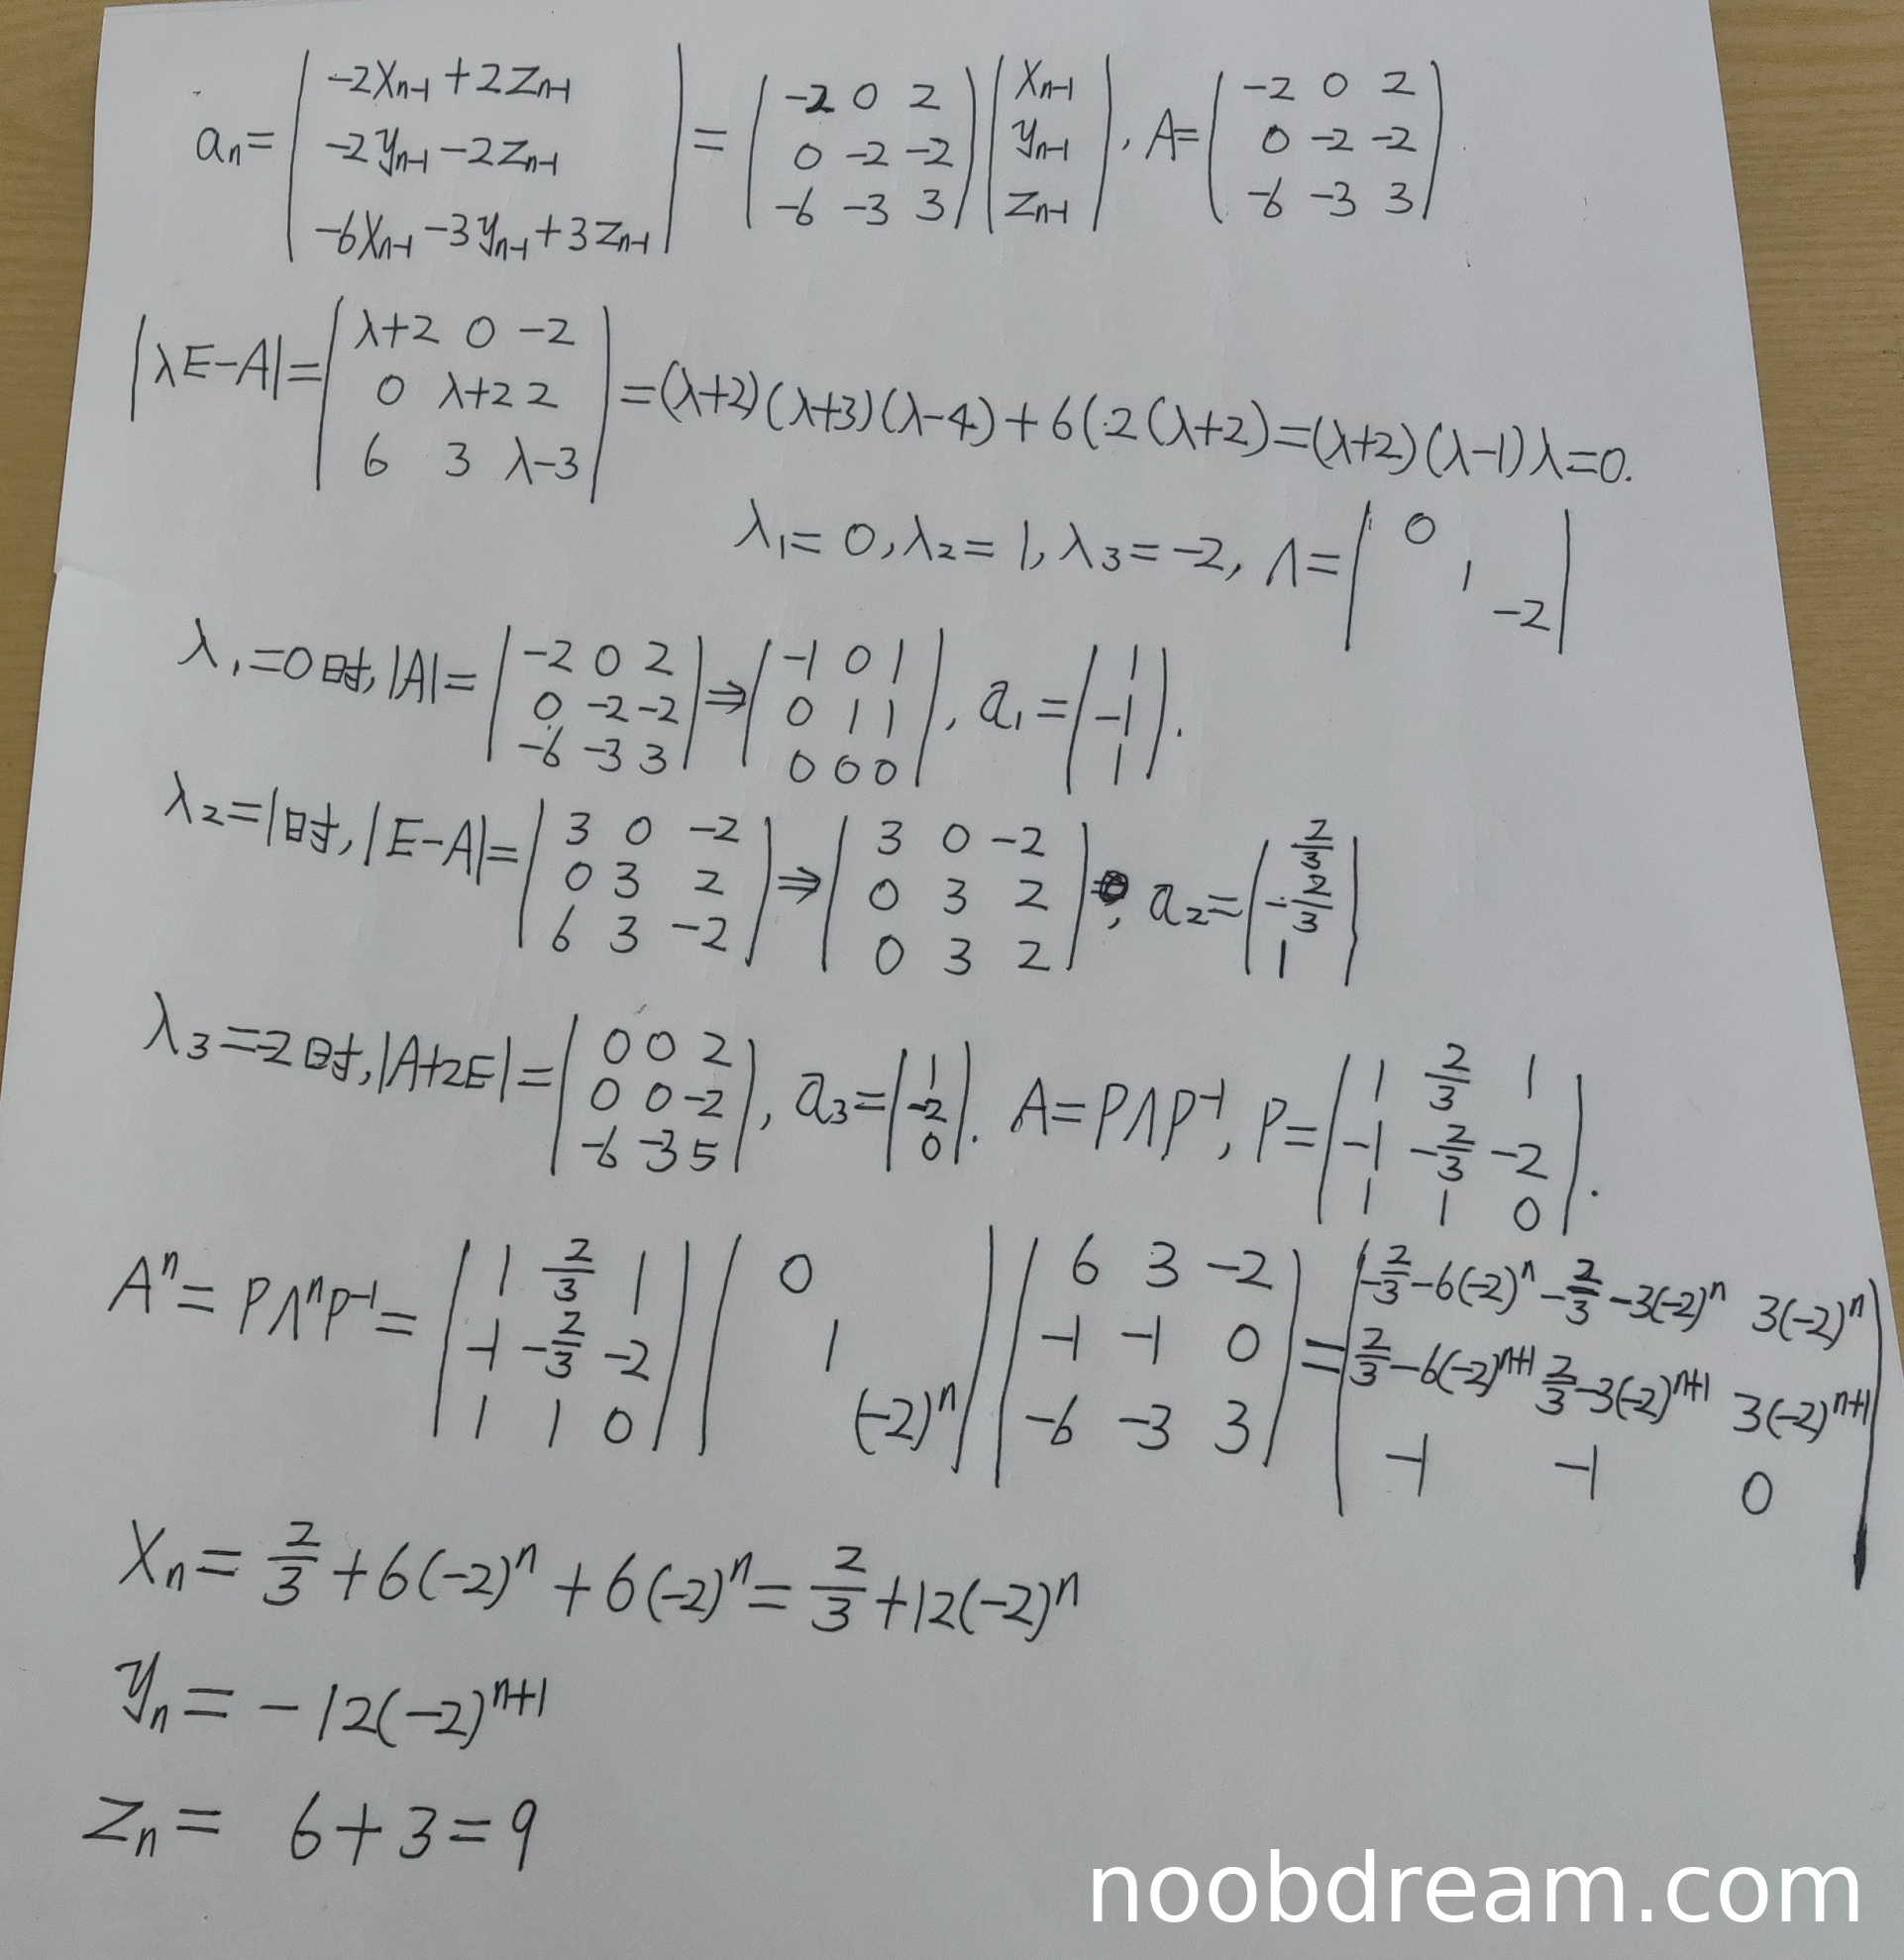 aₙ = | -2Xₙ₋₁+2Zₙ₋₁ ; -2yₙ₋₁-2Zₙ₋₁ ; -6Xₙ₋₁-3yₙ₋₁+3Zₙ₋₁ | = ( -2 0 2 ; 0 -2 -2 ; -6 -3 3 ) | Xₙ₋₁ ; yₙ₋₁ ; Zₙ₋₁ |, A= ( -2 0 2 ; 0 -2 -2 ; -6 -3 3 ).
|λE-A| = | λ+2 0 -2 ; 0 λ+2 2 ; 6 3 λ-3 | = (λ+2)(λ+3)(λ-4)+6(2(λ+2)=(λ+2)(λ-1)λ=0.
λ₁=0, λ₂=1, λ₃=-2, Λ= | 0 ; 1 ; -2 |
λ₁=0时, |A|= | -2 0 2 ; 0 -2 -2 ; -6 -3 3 | ⇒ | -1 0 1 ; 0 1 1 ; 0 0 0 |, a₁= ( 1 ; -1 ; 1 ).
λ₂=1时, |E-A|= | 3 0 -2 ; 0 3 2 ; 6 3 -2 | ⇒ | 3 0 -2 ; 0 3 2 ; 0 3 2 |, a₂= ( 2/3 ; -2/3 ; 1 )
λ₃=-2时, |A+2E|= | 0 0 2 ; 0 0 -2 ; -6 -3 5 |, a₃= | 1 ; -2 ; 0 |. A=PΛP⁻¹, P= | 1 2/3 1 ; -1 -2/3 -2 ; 1 1 0 |.
Aⁿ= PΛⁿP⁻¹= | 1 2/3 1 ; -1 -2/3 -2 ; 1 1 0 | | 0 ; 1 ; (-2)ⁿ | | 6 3 -2 ; -1 -1 0 ; -6 -3 3 | = | -2/3-6(-2)ⁿ -2/3-3(-2)ⁿ 3(-2)ⁿ ; 2/3-6(-2)ⁿ⁺¹ 2/3-3(-2)ⁿ⁺¹ 3(-2)ⁿ⁺¹ ; -1 -1 0 |
Xₙ= 2/3+6(-2)ⁿ+6(-2)ⁿ= 2/3+12(-2)ⁿ
yₙ= -12(-2)ⁿ⁺¹
Zₙ= 6+3=9
noobdream.com